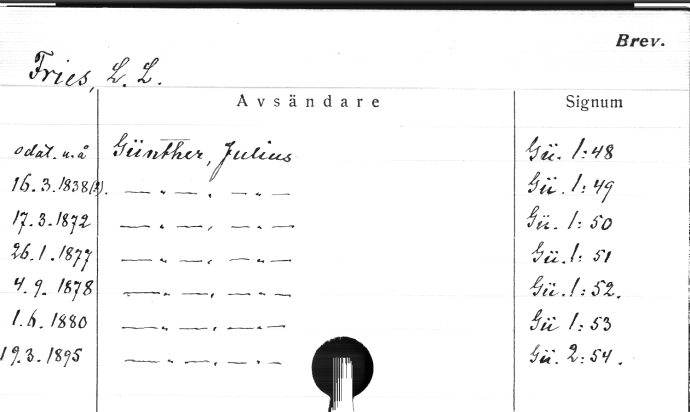 Brev.
Fries, L. L.
Avsändare Signum
odat. u. å Günther, Julius Gü. 1:48
16.3.1838(?). — „ — , — „ — Gü. 1:49
17.3.1872 — „ — , — „ — Gü. 1:50
26.1.1877 — „ — , — „ — Gü. 1:51
4.9.1878 — „ — , — „ — Gü. 1:52.
1.6.1880 — „ — , — „ — Gü 1:53
19.3.1895 — „ — , — „ — Gü. 2:54.